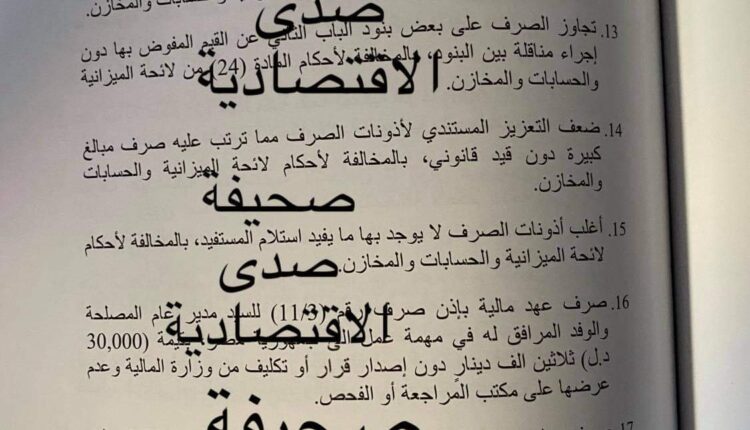 والحسابات والمخازن.
13. تجاوز الصرف على بعض بنود الباب الثاني عن القيم المفوض بها دون
إجراء مناقلة بين البنود، بالمخالفة لأحكام المادة (24) من لائحة الميزانية
والحسابات والمخازن.
14. ضعف التعزيز المستندي لأذونات الصرف مما ترتب عليه صرف مبالغ
كبيرة دون قيد قانوني، بالمخالفة لأحكام لائحة الميزانية والحسابات
والمخازن.
15. أغلب أذونات الصرف لا يوجد بها ما يفيد استلام المستفيد، بالمخالفة لأحكام
لائحة الميزانية والحسابات والمخازن.
16. صرف عهد مالية بإذن صرف رقم (11/3) للسيد مدير عام المصلحة
والوفد المرافق له في مهمة عمل إلى بقيمة (30,000
د.ل) ثلاثين الف دينار دون إصدار قرار أو تكليف من وزارة المالية وعدم
عرضها على مكتب المراجعة أو الفحص.
17.
صدى
الاقتصادية
صحيفة
صدى
الاقتصادية
صحيفة